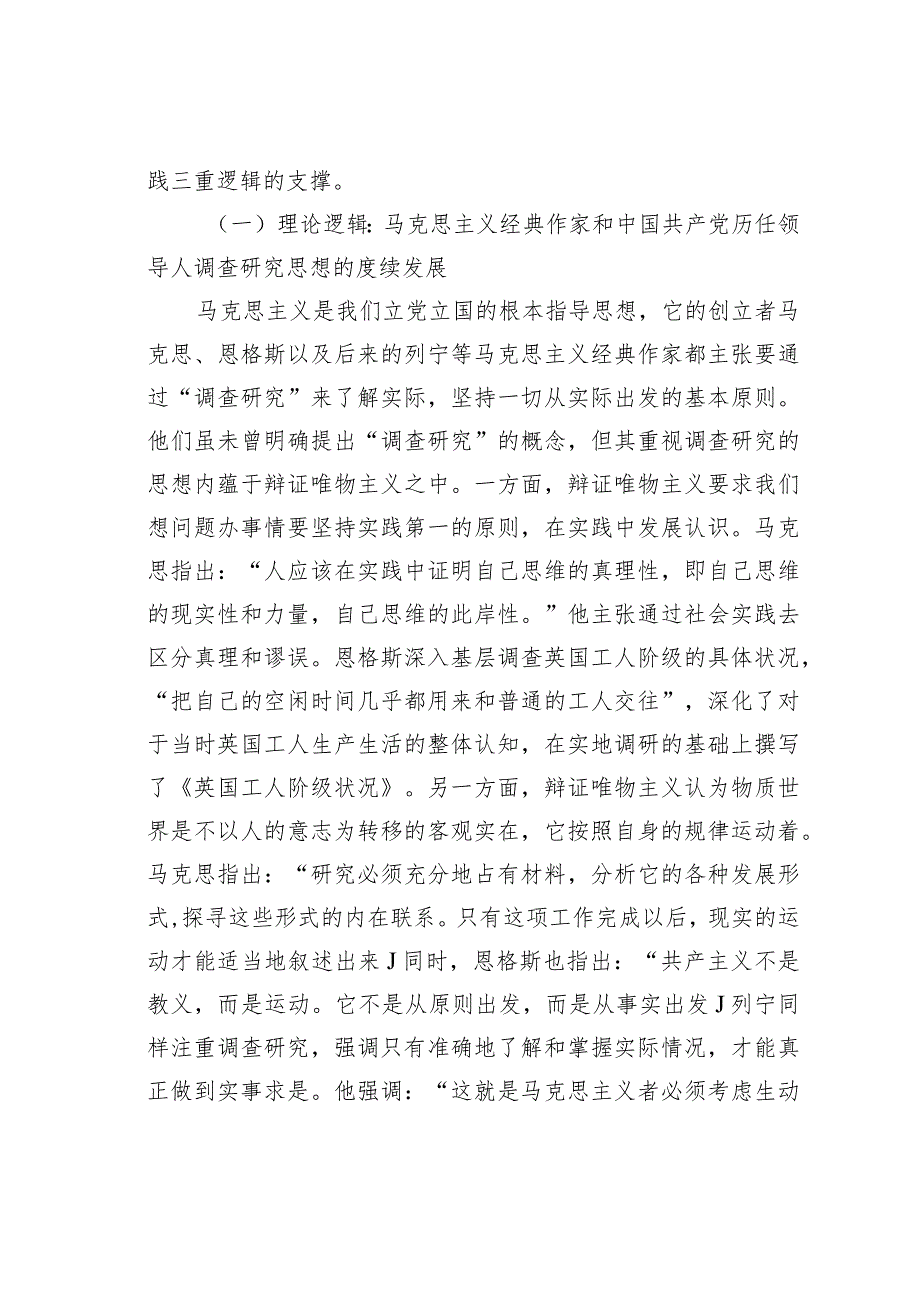 践三重逻辑的支撑。
（一）理论逻辑：马克思主义经典作家和中国共产党历任领
导人调查研究思想的度续发展
马克思主义是我们立党立国的根本指导思想，它的创立者马
克思、恩格斯以及后来的列宁等马克思主义经典作家都主张要通
过“调查研究”来了解实际，坚持一切从实际出发的基本原则。
他们虽未曾明确提出“调查研究”的概念，但其重视调查研究的
思想内蕴于辩证唯物主义之中。一方面，辩证唯物主义要求我们
想问题办事情要坚持实践第一的原则，在实践中发展认识。马克
思指出：“人应该在实践中证明自己思维的真理性，即自己思维
的现实性和力量，自己思维的此岸性。”他主张通过社会实践去
区分真理和谬误。恩格斯深入基层调查英国工人阶级的具体状况，
“把自己的空闲时间几乎都用来和普通的工人交往”，深化了对
于当时英国工人生产生活的整体认知，在实地调研的基础上撰写
了《英国工人阶级状况》。另一方面，辩证唯物主义认为物质世
界是不以人的意志为转移的客观实在，它按照自身的规律运动着。
马克思指出：“研究必须充分地占有材料，分析它的各种发展形
式,探寻这些形式的内在联系。只有这项工作完成以后，现实的运
动才能适当地叙述出来J同时，恩格斯也指出：“共产主义不是
教义，而是运动。它不是从原则出发，而是从事实出发J列宁同
样注重调查研究，强调只有准确地了解和掌握实际情况，才能真
正做到实事求是。他强调：“这就是马克思主义者必须考虑生动